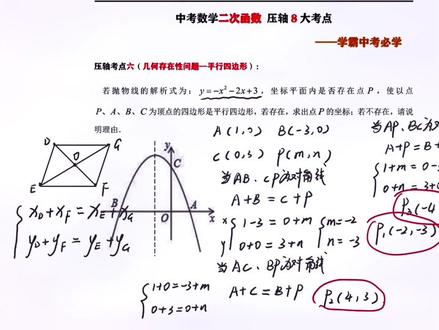 中考数学二次函数 压轴8大考点
——学霸中考必学
压轴考点六（几何存在性问题—平行四边形）：
若抛物线的解析式为：y=-x²-2x+3，坐标平面内是否存在点P，使以点
P、A、B、C为顶点的四边形是平行四边形，若存在，求出点P的坐标；若不存在，请说
明理由.
A(1,0) B(-3,0)
C(0,3) P(m,n)
当AB、CP为对角线
A+B=C+P
x 1-3=0+m
y 0+0=3+n
m=-2
n=-3
当AC、BP为对角线
A+C=B+P
P₂(4,3)
1+0=-3+m
0+3=0+n
当AP、BC为
A+P=B+
1+m=0-3
0+n=3+0
P₃(-4
P₁(-2,-3)
D G
O
E F
x_D+x_F=x_E+x_G
y_D+y_F=y_E+y_G
y
C
B O A x